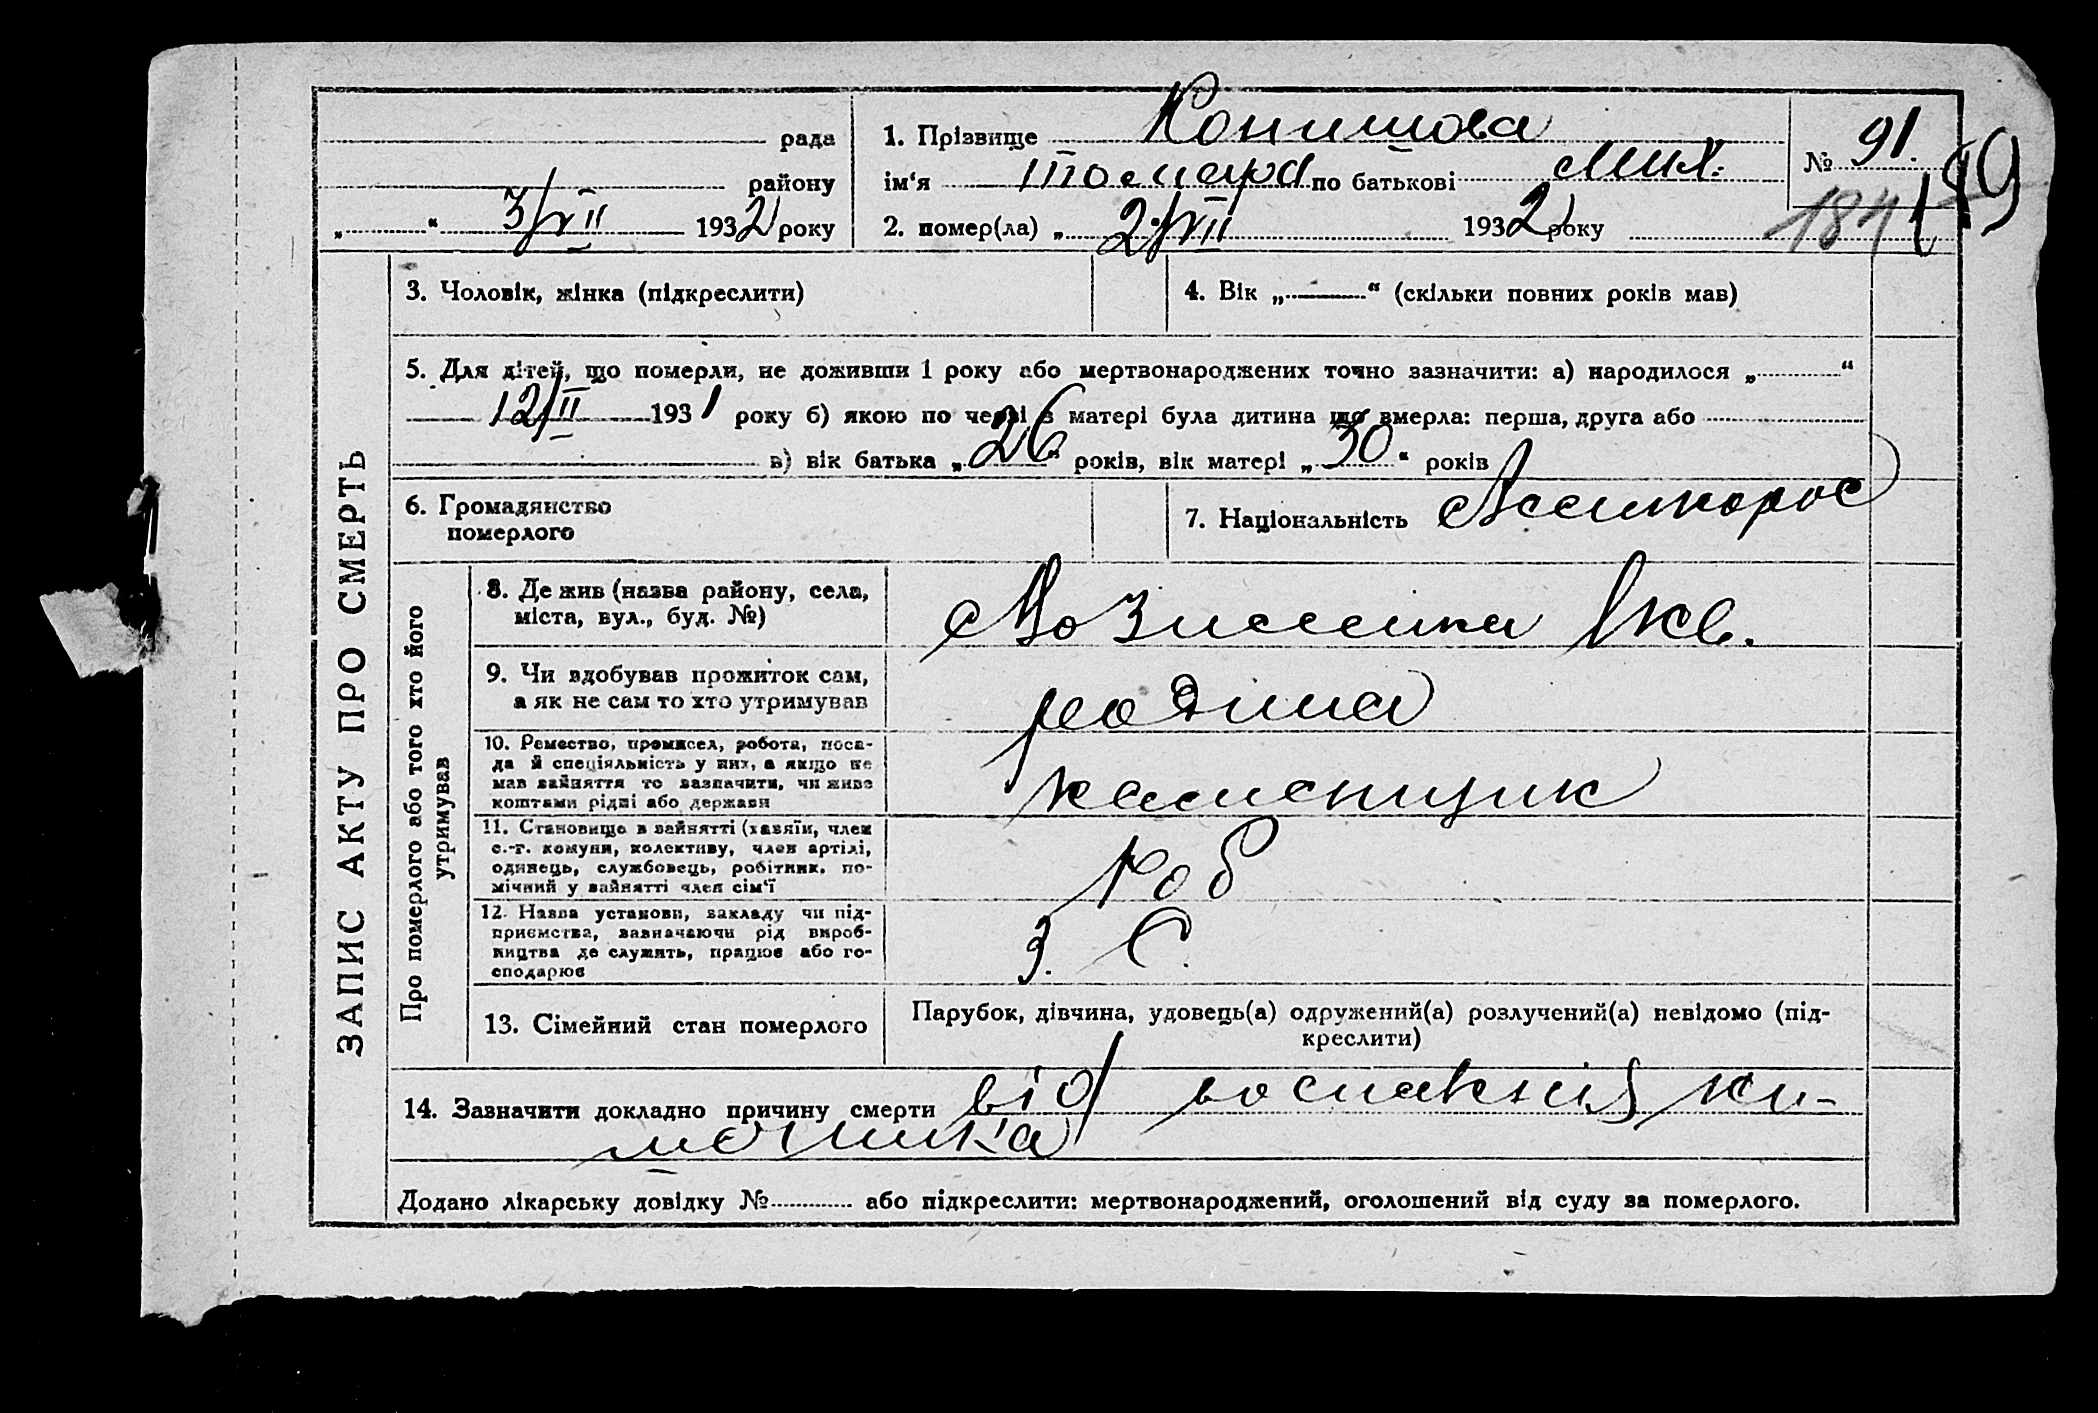 рада
району
„ “ 3/VII 1932 року
1. Прізвище Конишова
ім‘я Томара по батькові Мих.
2. помер(ла) „ 2/VII 1932 року
№ 91.
184
189
ЗАПИС АКТУ ПРО СМЕРТЬ
3. Чоловік, жінка (підкреслити)
4. Вік „ “ (скільки повних років мав)
5. Для дітей, що померли, не доживши 1 року або мертвонароджених точно зазначити: а) народилося „ “
12/II 1931 року б) якою по черзі в матері була дитина що вмерла: перша, друга або
в) вік батька „26“ років, вік матері „30“ років
6. Громадянство
померлого
7. Національність
Про померлого або того хто його
утримував
8. Де жив (назва району, села,
міста, вул., буд. №)
кв.
9. Чи вдобував прожиток сам,
а як не сам то хто утримував
родина
10. Ремество, промисел, робота, поса-
да й спеціяльність у них, а якщо не
мав зайняття то зазначити, чи живе
коштами рідні або держави
каменщик
11. Становище в зайнятті (хазяїн, член
с.-г. комуни, колективу, член артілі,
одинець, службовець, робітник, по-
мічний у зайнятті член сім‘ї
Роб
12. Назва установи, закладу чи під-
приємства, зазначаючи рід вироб-
ництва де служить, працює або го-
сподарює
З. С.
13. Сімейний стан померлого
Парубок, дівчина, удовець(а) одружений(а) розлучений(а) невідомо (під-
креслити)
14. Зазначити докладно причину смерти від ки-
шечника
Додано лікарську довідку № або підкреслити: мертвонароджений, оголошений від суду за померлого.